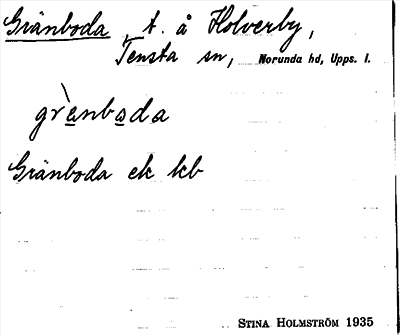 Gränboda t. å Holverby,
Tensta sn, Norunda hd, Upps. l.
grànboda
Gränboda ek kb
STINA HOLMSTRÖM 1935